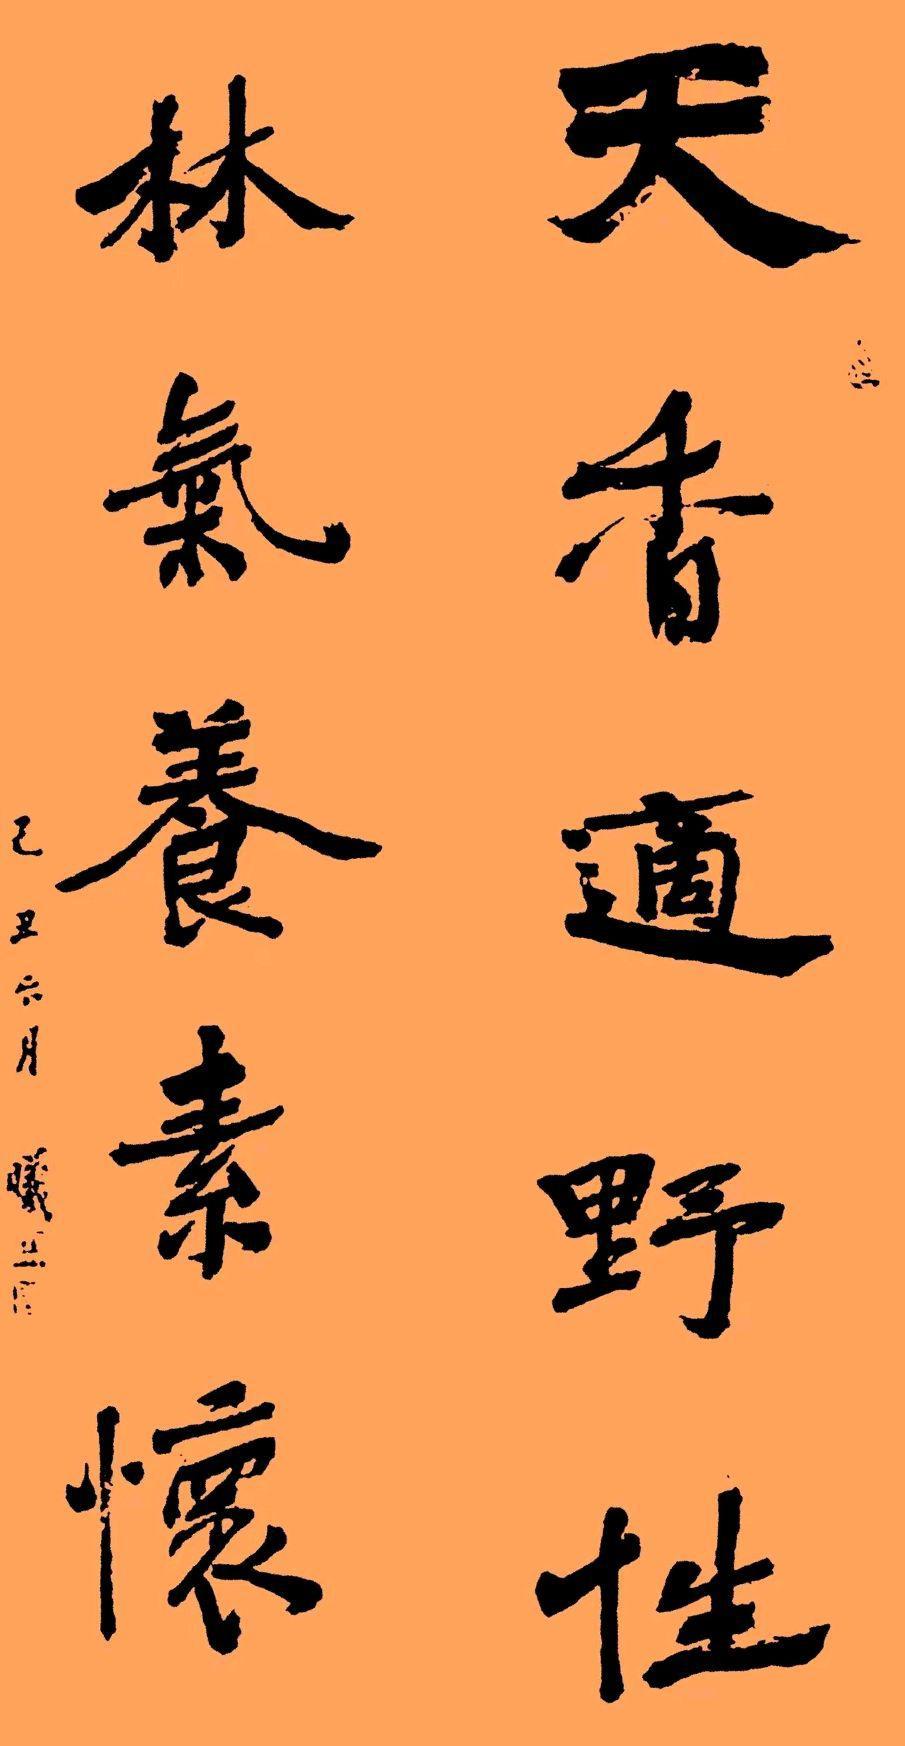 天香適野性
林氣養素懷
己丑六月 曦